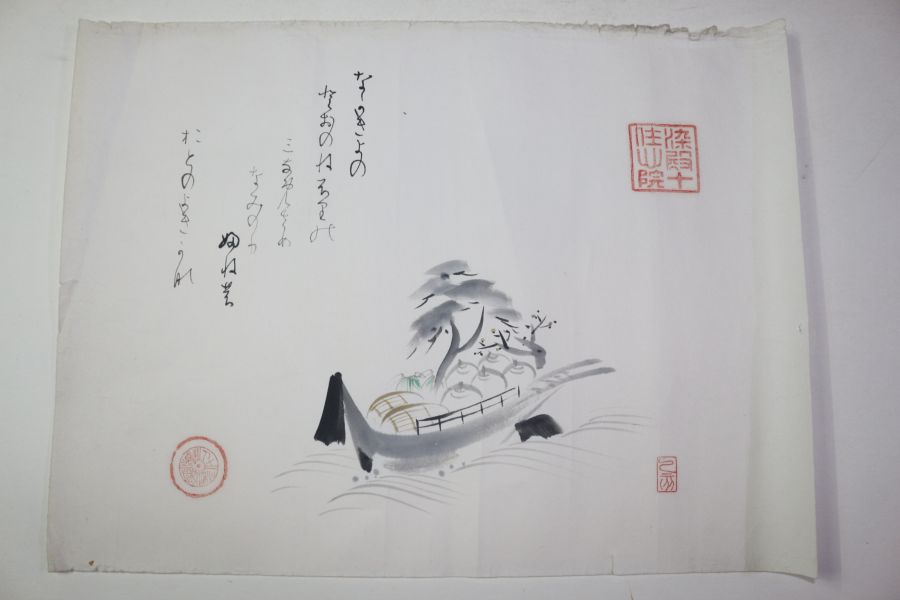 なかきよの
とおのねふりの
三なめさめ
なみのり
婦ねの
おとのよきかな
染殿十